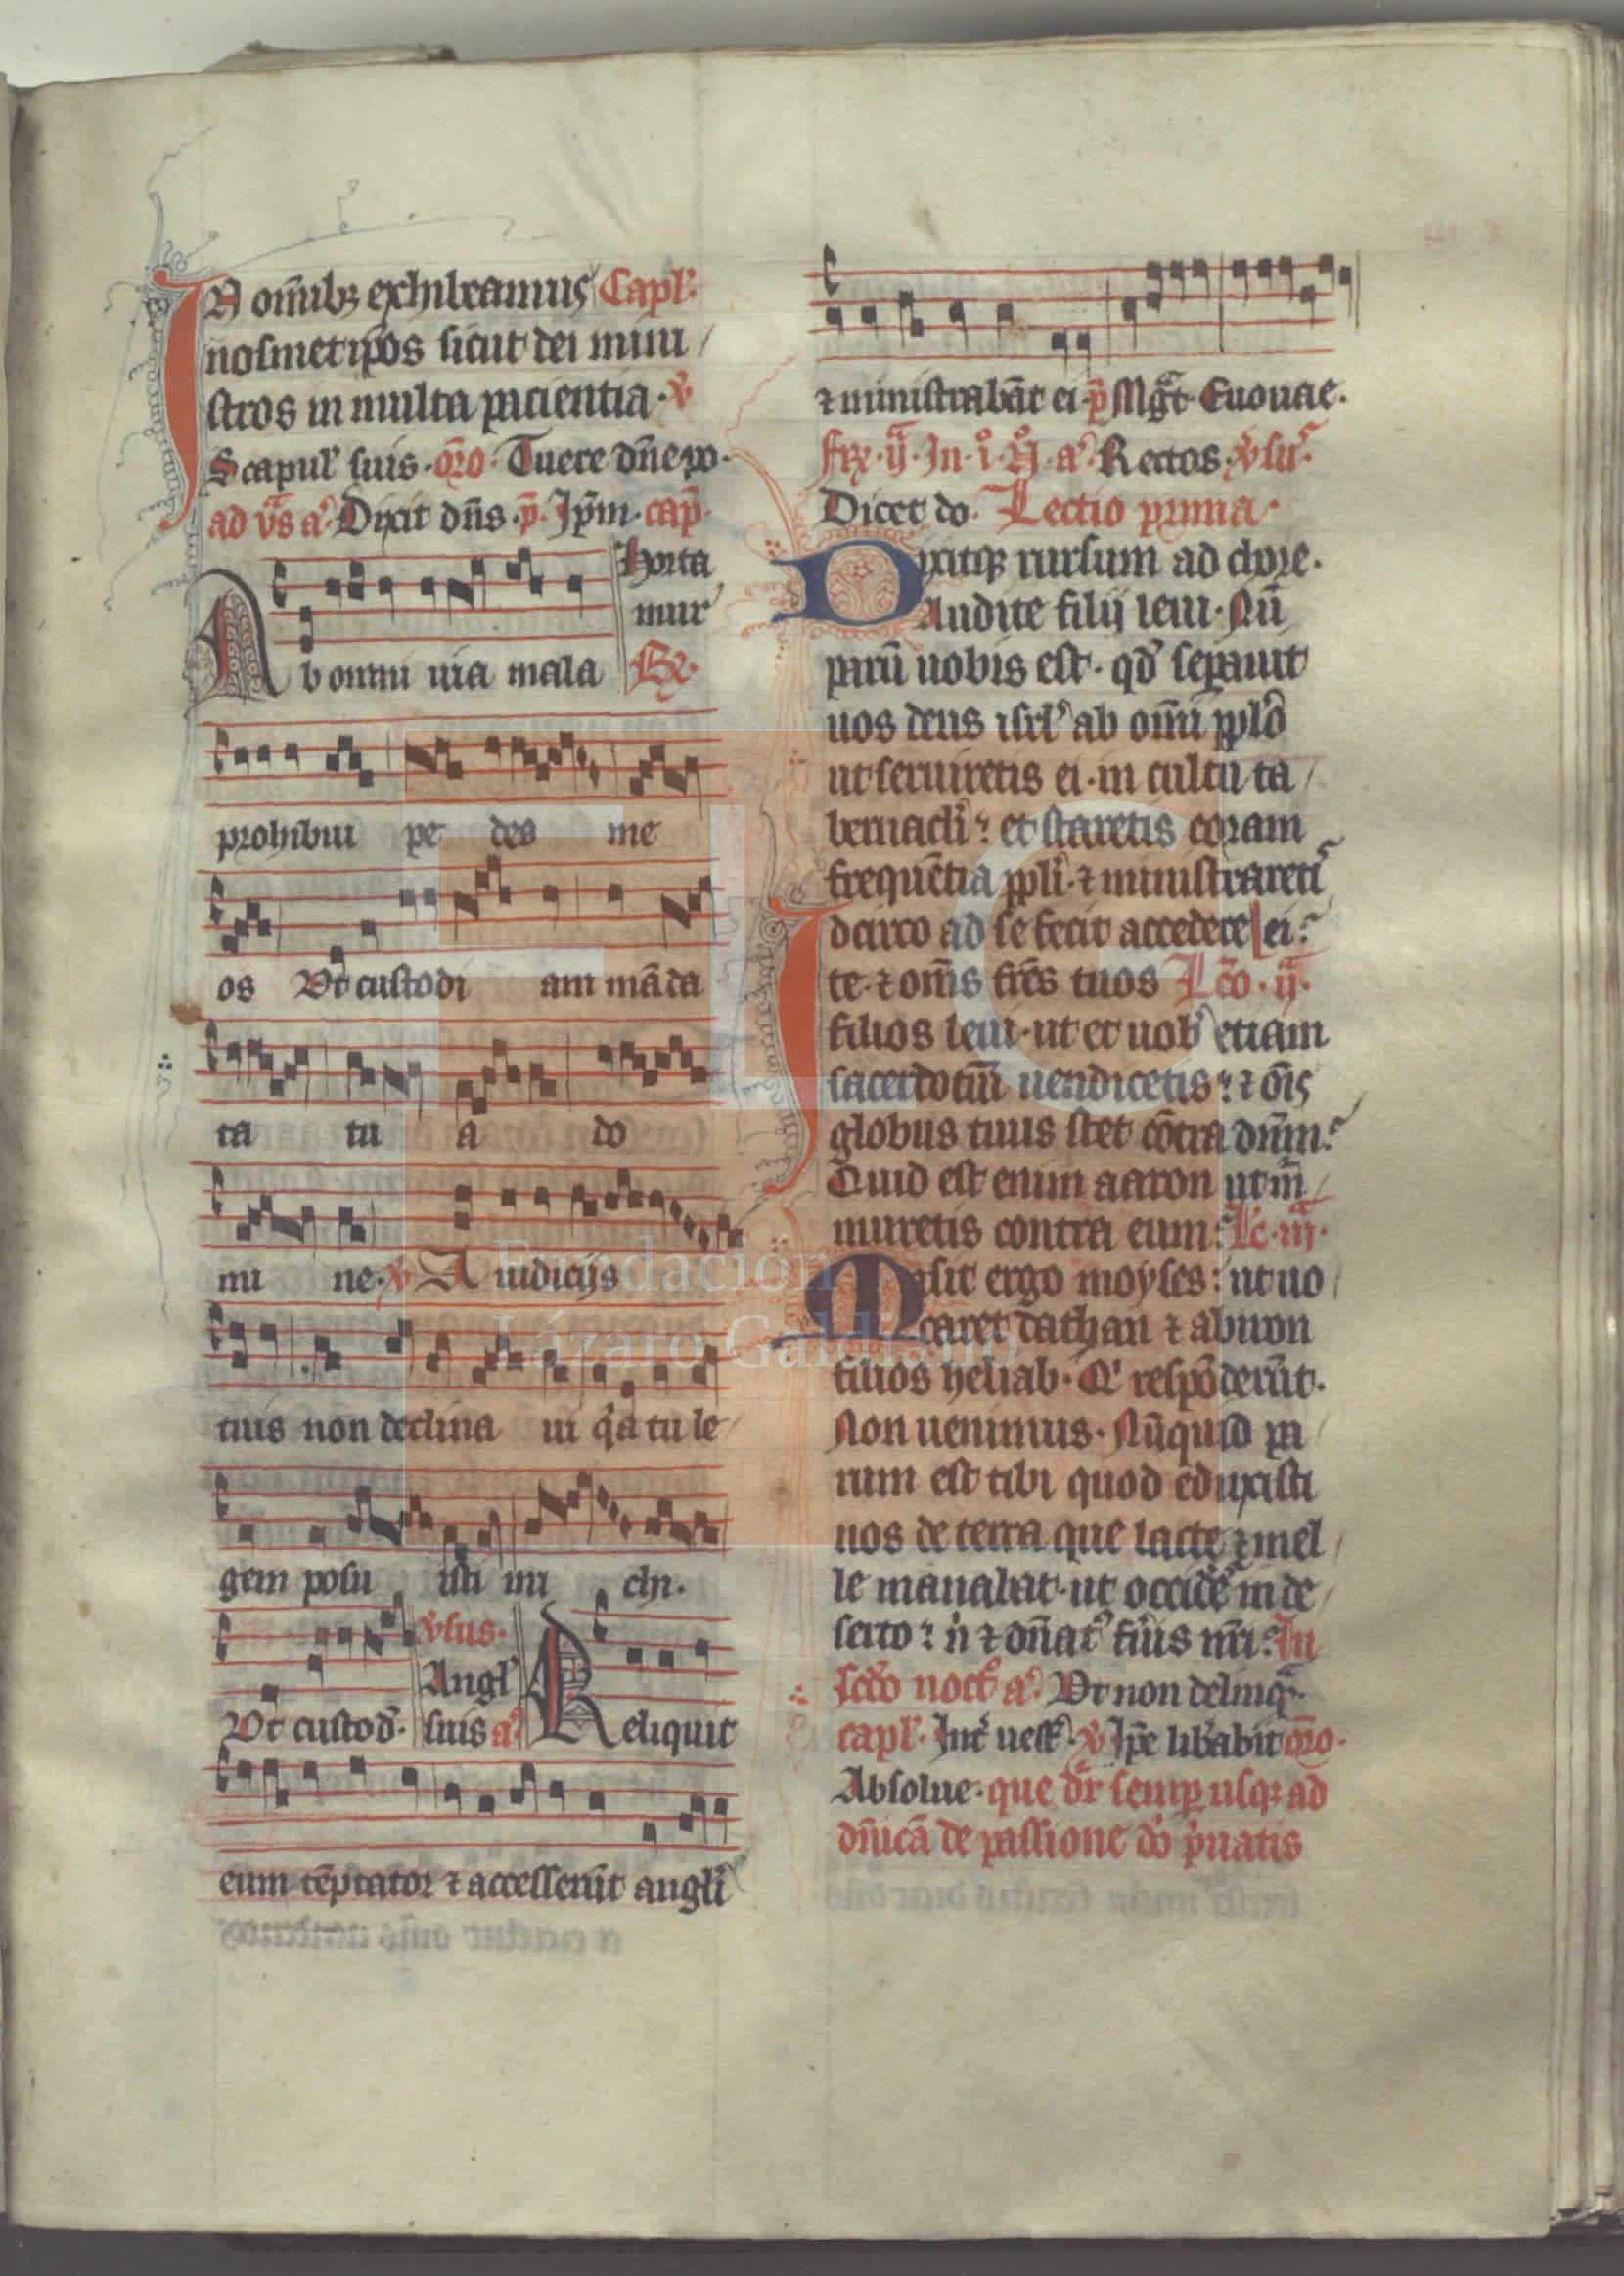 In om̃ibꝫ exhibeamus Capl'.
nosmetip̃os sicut dei mini/
stros in multa paciencia. v̾
Scapul' suis. or̃o. Tuere dñe po.
ad vs̃ a. Dixit dñs. p̃. Ip̃m. cap̃.
Horta
mur
Ab omni uia mala R̃.
prohibui pe des me
os Vt custodi am mãda
ta tu a do
mi ne. v̾ A iudicijs
tuis non declina ui q̾a tu le/
gem posu isti mi chi.
v̾sus.
Angl'
Vt custod'. suis a. Reliquit
eum tẽptator ⁊ accesserũt angl'i
⁊ ministrabãt ei. p̃ Mg̃t. Euouae.
Dicet do. Lectio prima.
Dixitqꝫ rursum ad chore.
Audite filij leui. Nũ
parũ uobis est. qđ sepauit
uos deus isrl' ab om̃i pp̃lo
ut seruiretis ei. in cultu ta/
bernacli: et staretis coram
frequẽtia pp̃li. ⁊ ministrareti'
Idcirco ad se fecit accedere ei?
te. ⁊ om̃s fr̃es tuos Lc̃o. ij.
filios leui. ut et uob' etiam
sacerdotiũ uendicetis: ⁊ om̃is
globus tuus stet cõtra dnm̃?
Quid est enim aaron ut m̃/
muretis contra eum? Lc̃. iij.
Misit ergo moyses: ut uo/
caret dathan ⁊ abiron
filios heliab. Q' respõderũt.
Non uenimus. Nũquid pa/
rum est tibi quod eduxisti
nos de terra que lacte ⁊ mel/
le manabat. ut occidẽ in de/
serto: n' ⁊ dñat' fu'is nr̃i? In
sc̃do noct' a. Vt non delinq̃.
capl'. Int' uest'. v̾ Ip̃e lib'abit or̃o.
Absolue. que dr̃ semp usqꝫ ad
dñicã de passione do p'uatis